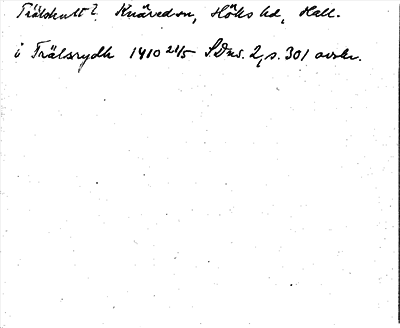 Trälshult? Knäred sn, Höks hd, Hall.
i Trälsrydh 1410 21/5 SDns. 2, s. 301 avskr.